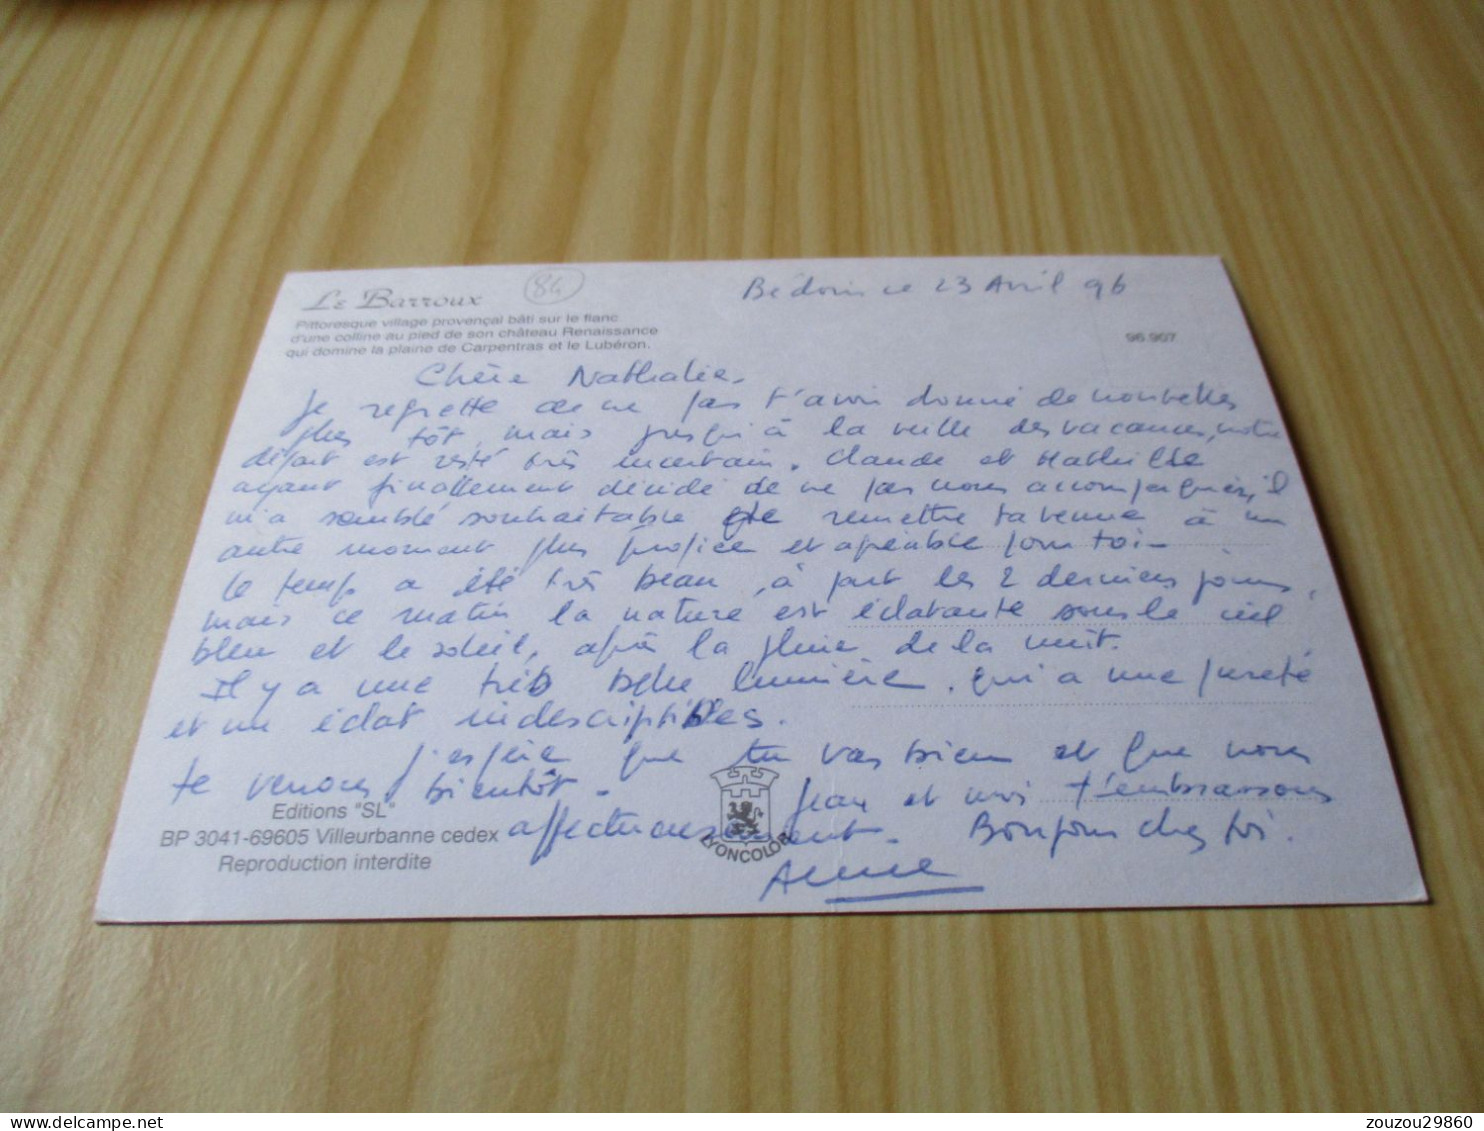 Le Barroux
84
Bédoin ce 23 Avril 96
Pittoresque village provençal bâti sur le flanc
d'une colline au pied de son château Renaissance
qui domine la plaine de Carpentras et le Lubéron.
96.907
Chère Nathalie,
Je regrette de ne pas t'avoir donné de nouvelles
plus tôt, mais jusqu'à la veille des vacances, notre
départ est resté très incertain. Claude et Mathilde
ayant finallement décidé de ne pas nous accompagner, il
m'a semblé souhaitable de remettre ta venue à un
autre moment plus propice et agréable pour toi.
Le temps a été très beau, à part les 2 derniers jours,
mais ce matin la nature est éclatante sous le ciel
bleu et le soleil, après la pluie de la nuit.
Il y a une très belle lumière, qui a une pureté
et un éclat indescriptibles.
J'espère que tu vas bien et que nous
te verrons bientôt. Jean et moi t'embrassons
affectueusement. Bonjour chez toi.
Editions "SL"
BP 3041-69605 Villeurbanne cedex
Reproduction interdite
LYONCOLOR
Anne
zouzou29860